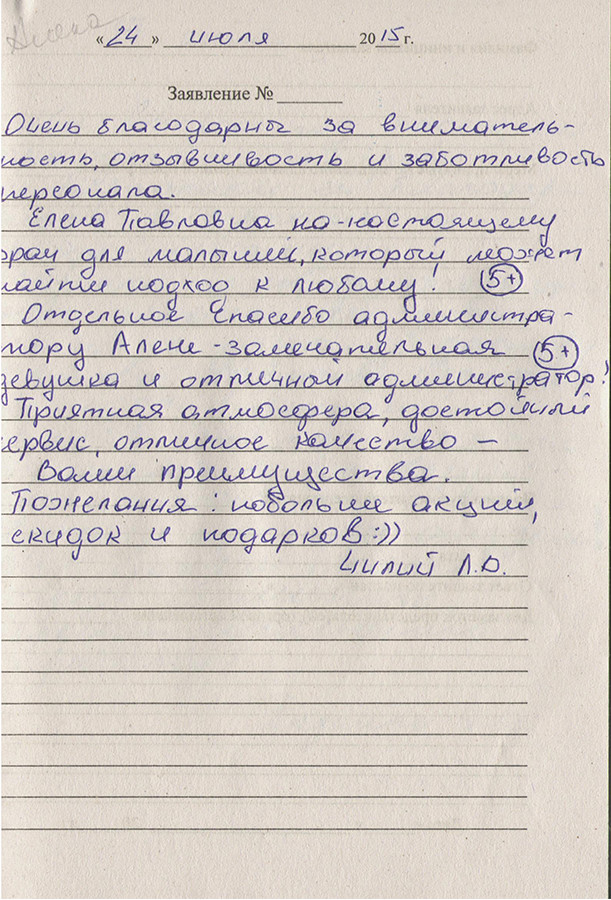 Алена
«24» июля 2015 г.
Заявление № ______
Очень благодарны за вниматель-
ность, отзывчивость и заботливость
персонала.
Елена Павловна по-настоящему
врач для малышей, который может
найти подход к любому! 5+
Отдельное Спасибо администра-
тору Алене - замечательная 5+
девушка и отличный администратор!
Приятная атмосфера, достойный
сервис, отличное качество –
Ваши преимущества.
Пожелания: побольше акций,
скидок и подарков :))